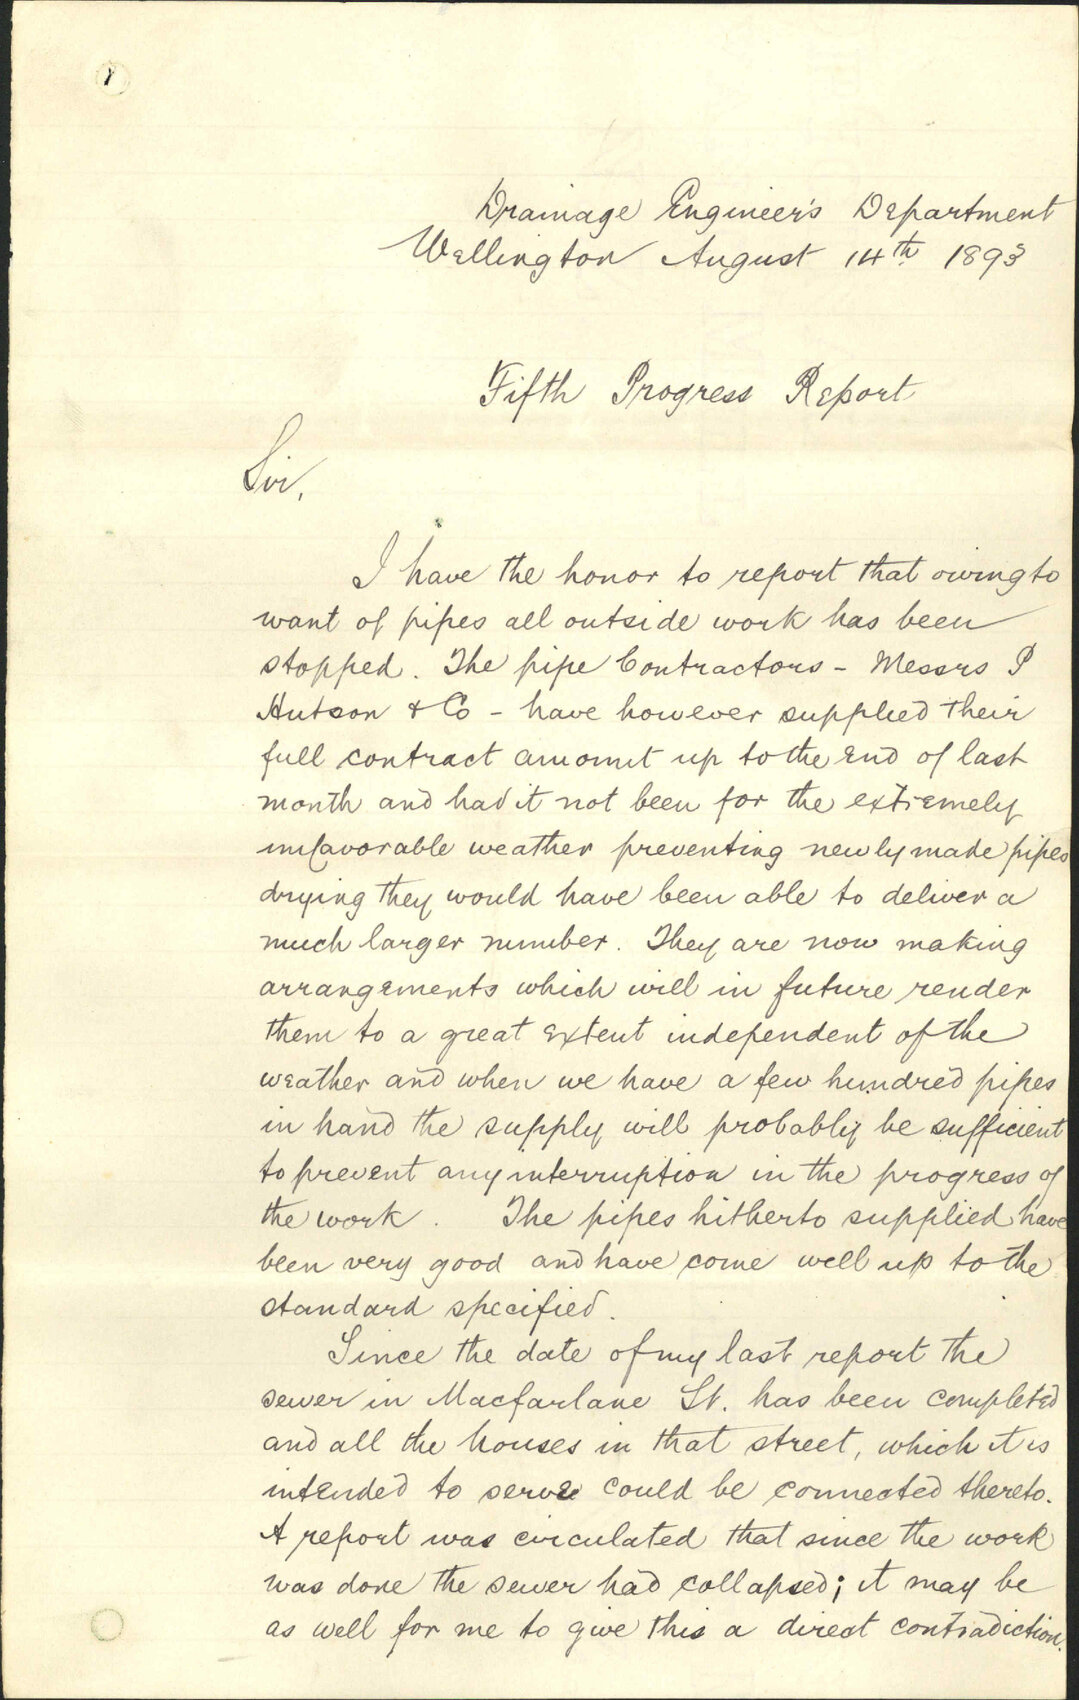 1
Drainage Engineer's Department
Wellington August 14th 1893
Fifth Progress Report
Sir,
I have the honor to report that owing to
want of pipes all outside work has been
stopped. The pipe Contractors - Messrs P
Hutson & Co - have however supplied their
full contract amount up to the end of last
month and had it not been for the extremely
unfavorable weather preventing newly made pipes
drying they would have been able to deliver a
much larger number. They are now making
arrangements which will in future render
them to a great extent independent of the
weather and when we have a few hundred pipes
in hand the supply will probably be sufficient
to prevent any interruption in the progress of
the work. The pipes hitherto supplied have
been very good and have come well up to the
standard specified.
Since the date of my last report the
sewer in Macfarlane St. has been completed
and all the houses in that street, which it is
intended to serve could be connected thereto.
A report was circulated that since the work
was done the sewer had collapsed; it may be
as well for me to give this a direct contradiction.